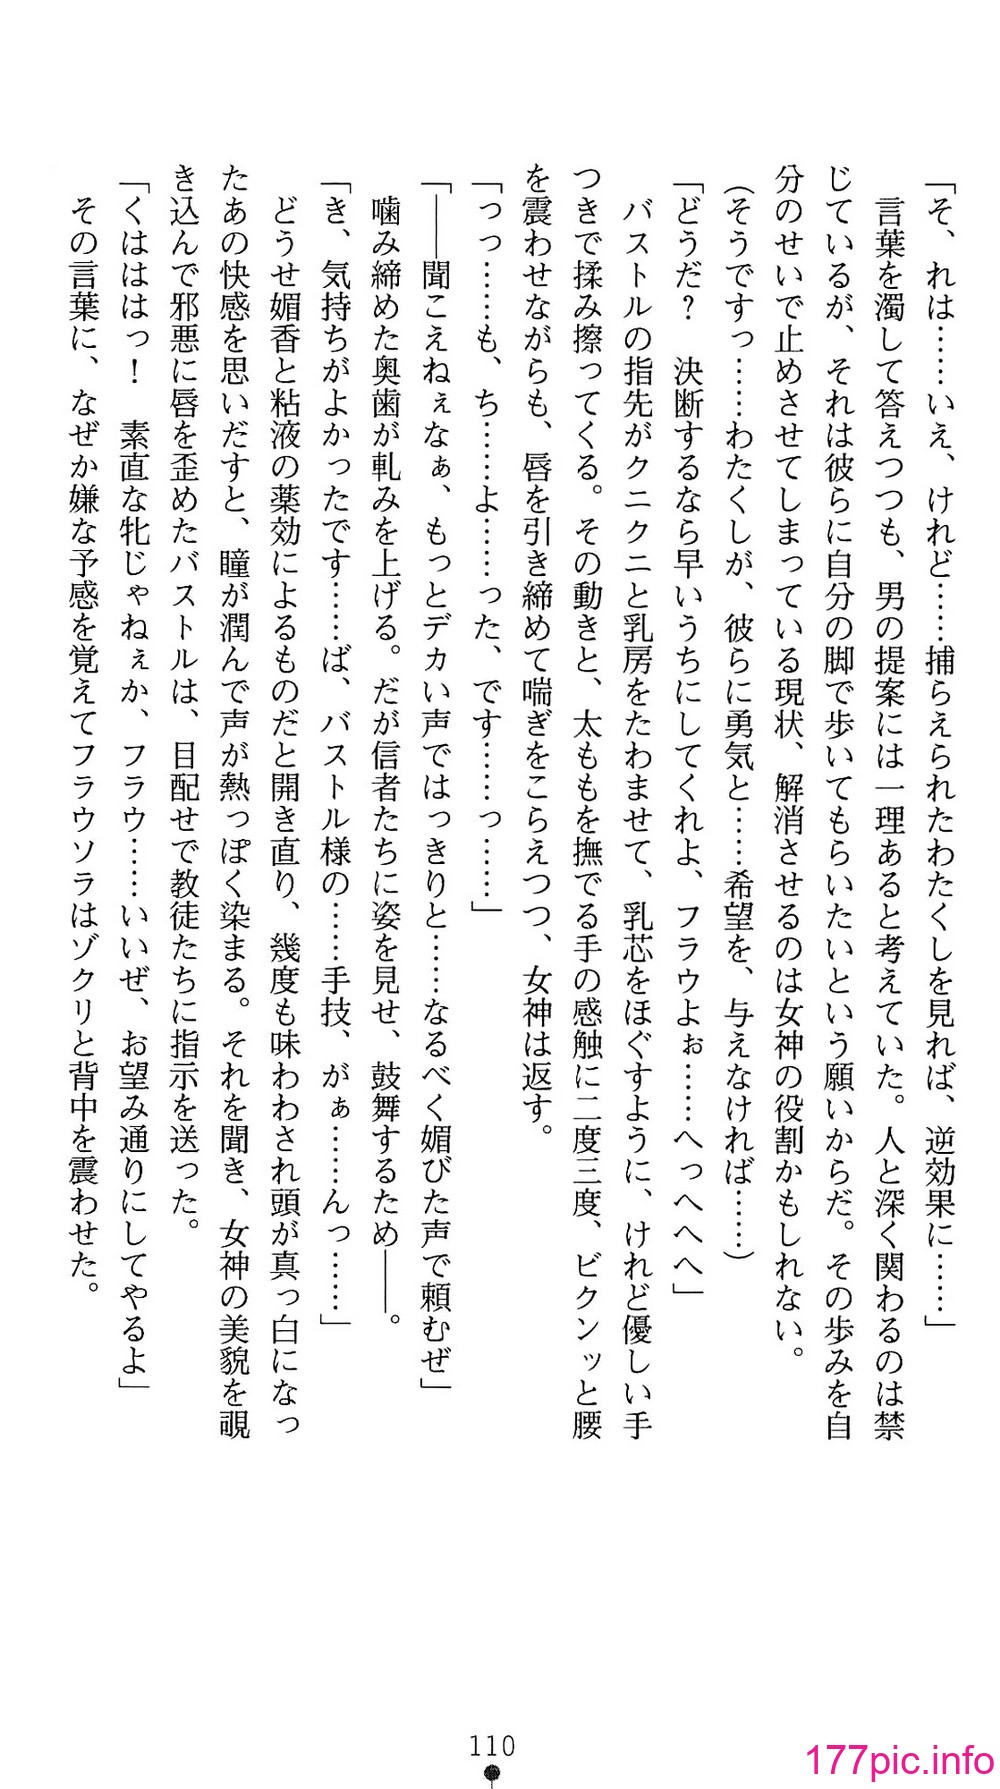 「そ、れは……いえ、けれど……捕らえられたわたくしを見れば、逆効果に……」
言葉を濁して答えつつも、男の提案には一理あると考えていた。人と深く関わるのは禁
じているが、それは彼らに自分の脚で歩いてもらいたいという願いからだ。その歩みを自
分のせいで止めさせてしまっている現状、解消させるのは女神の役割かもしれない。
（そうですっ……わたくしが、彼らに勇気と……希望を、与えなければ……）
「どうだ？　決断するなら早いうちにしてくれよ、フラウよぉ……へっへへへ」
バストルの指先がクニクニと乳房をたわませて、乳芯をほぐすように、けれど優しい手
つきで揉み擦ってくる。その動きと、太ももを撫でる手の感触に二度三度、ビクンッと腰
を震わせながらも、唇を引き締めて喘ぎをこらえつつ、女神は返す。
「っっ……も、ち……よ……った、です……っ……」
「――聞こえねぇなぁ、もっとデカい声ではっきりと……なるべく媚びた声で頼むぜ」
噛み締めた奥歯が軋みを上げる。だが信者たちに姿を見せ、鼓舞するため――。
「き、気持ちがよかったです……ば、バストル様の……手技、がぁ……んっ……」
どうせ媚香と粘液の薬効によるものだと開き直り、幾度も味わわされ頭が真っ白になっ
たあの快感を思いだすと、瞳が潤んで声が熱っぽく染まる。それを聞き、女神の美貌を覗
き込んで邪悪に唇を歪めたバストルは、目配せで教徒たちに指示を送った。
「くはははっ！　素直な牝じゃねぇか、フラウ……いいぜ、お望み通りにしてやるよ」
その言葉に、なぜか嫌な予感を覚えてフラウソラはゾクリと背中を震わせた。
110
177pic.info